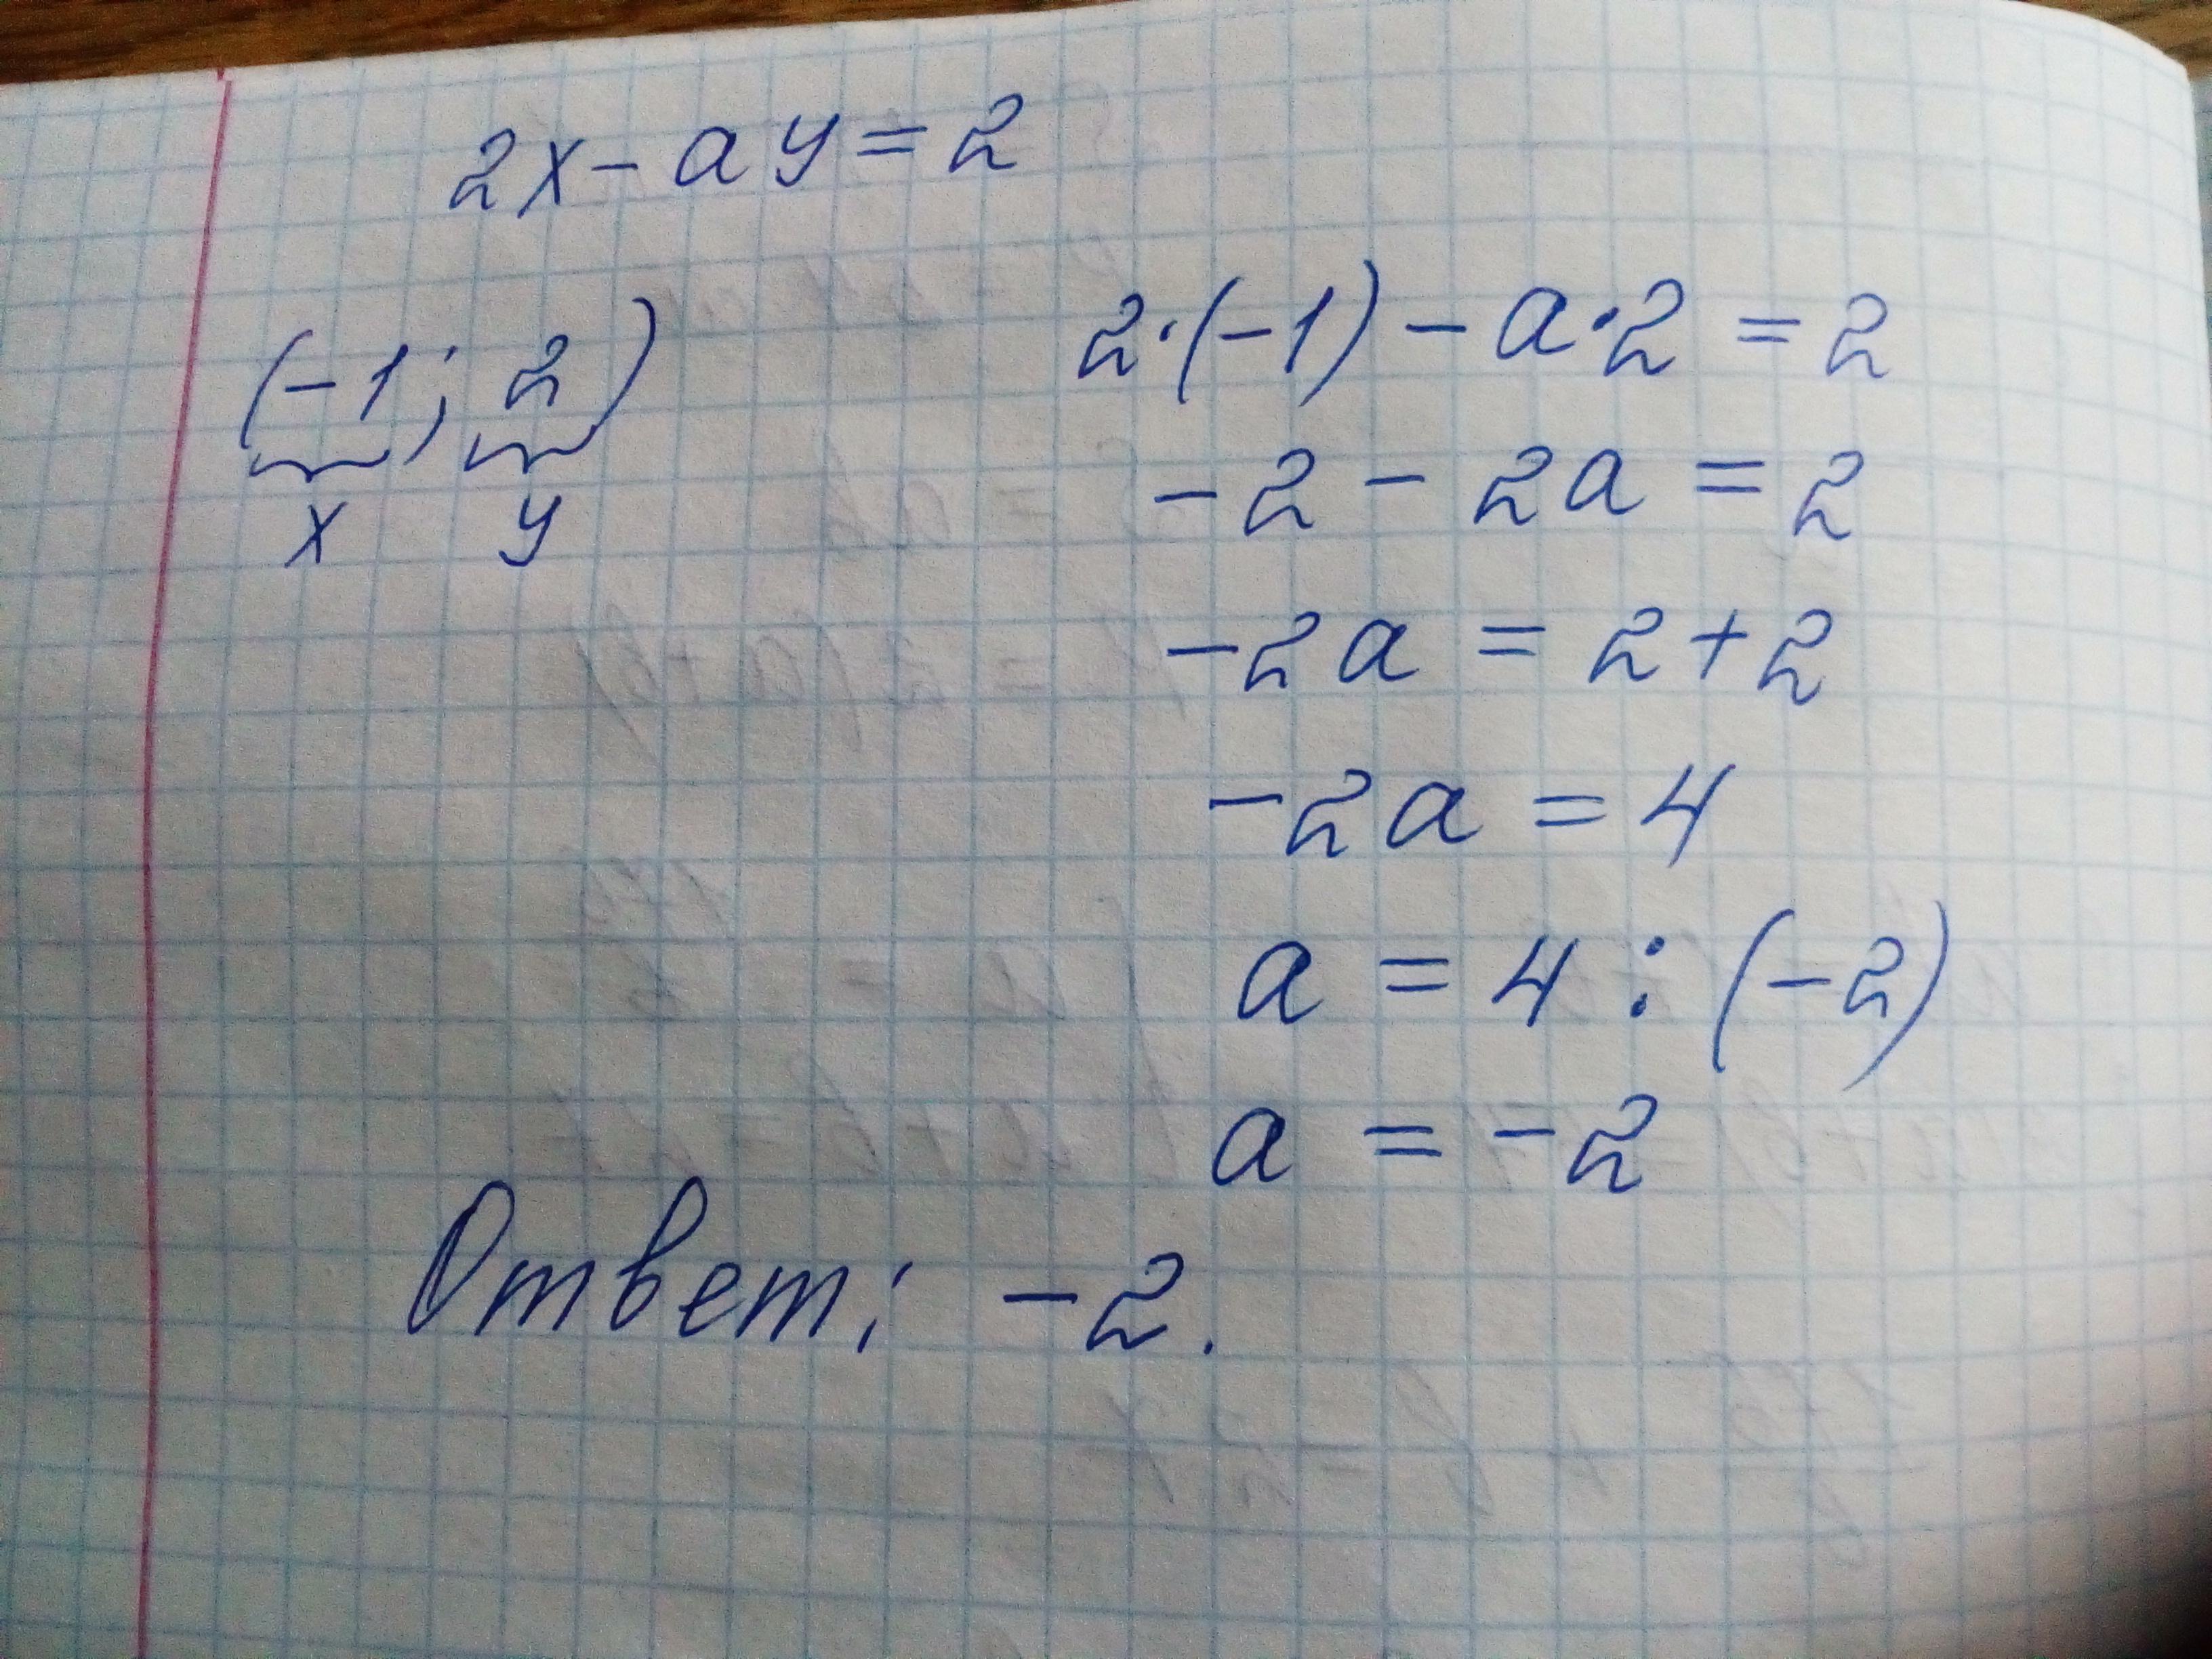 2x - ay = 2
(-1; 2)
x y
2·(-1) - a·2 = 2
-2 - 2a = 2
-2a = 2+2
-2a = 4
a = 4 : (-2)
a = -2
Ответ: -2.